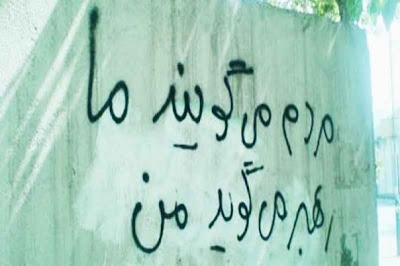 مردم می‌گویند ما
رهبر می‌گوید من